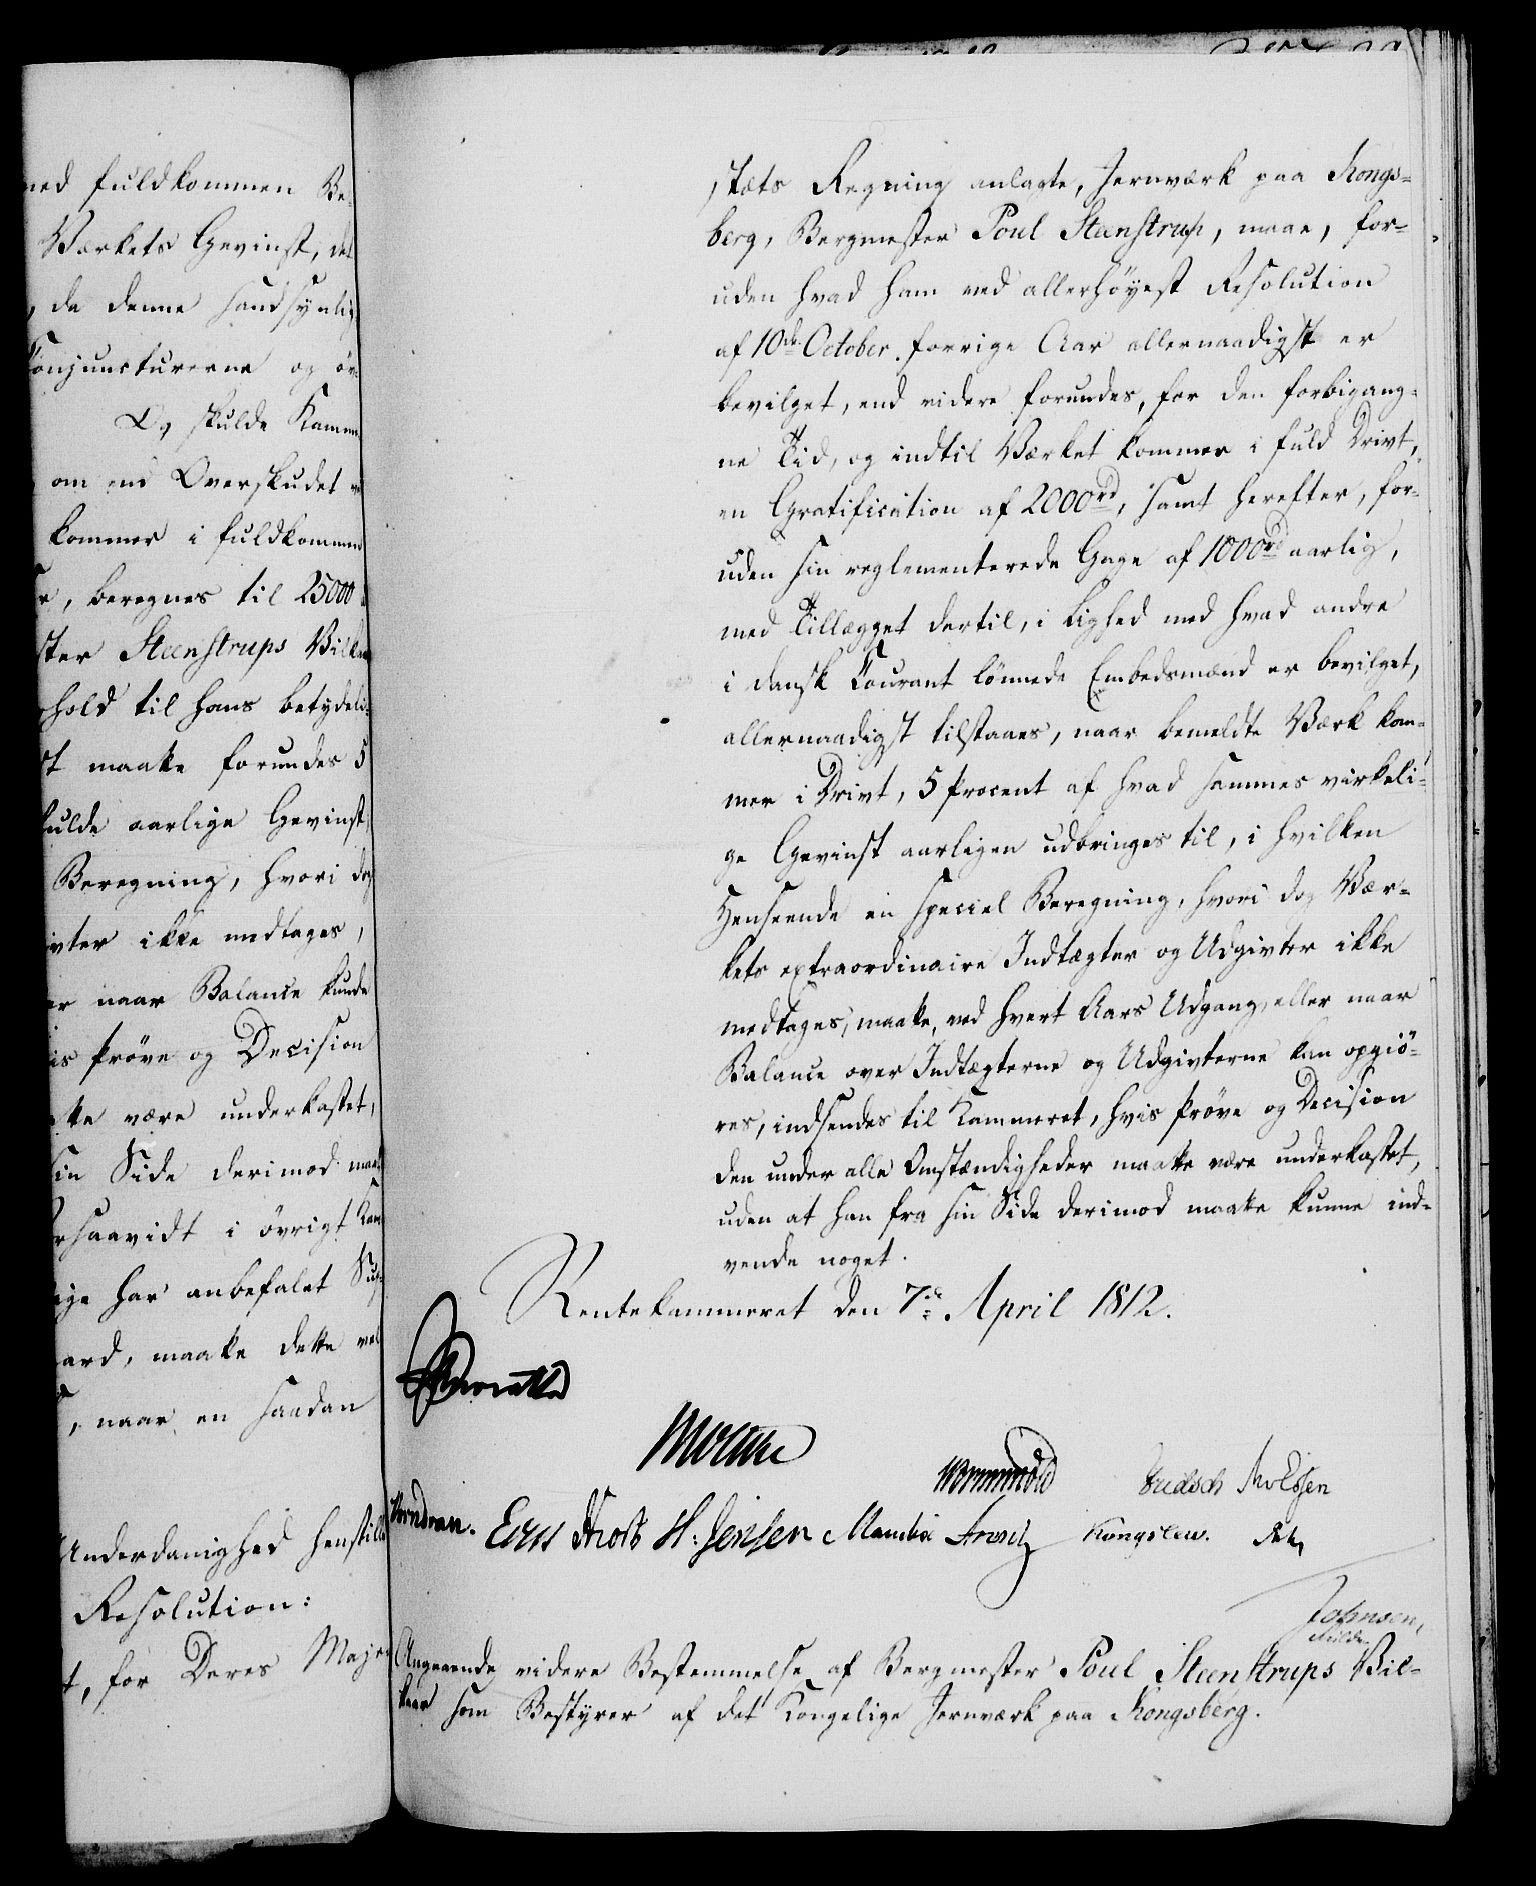 med fuldkommen Be-
Værkets Gevinst, det
, da denne sandsynlig
Conjuncturerne og øv-
Og skulde Kamme
om end Overskudet
kommer i fuldkommen
, beregnes til 25000
ster Steenstrups Vilkaar
hold til hans betydeli-
st maatte forundes 5
fulde aarlige Gevinst,
Beregning, hvori dog
ivter ikke medtages,
er naar Balance kunde
is Prøve og Decision
atte være underkastet,
sin Side derimod maatte
rsaavidt i øvrigt Kam
ige har anbefalet
ard, maatte dette vel
, naar en saadan
Underdanighed henstille
Resolution:
t, for Deres Maje
stæts Regning anlagte, Jernværk paa Kongs-
berg, Bergmester Poul Steenstrup, maae, for-
uden hvad ham ved allerhöyest Resolution
af 10de October forrige Aar allernaadigst er
bevilget, end videre forundes, for den forbigang-
ne Tid, og indtil Værket kommer i fuld Drivt,
en Gratification af 2000rd, samt herefter, for-
uden sin reglementerede Gage af 1000rd aarlig,
med Tillægget dertil, i Lighed med hvad andre
i dansk Courant lönnede Embedsmænd er bevilget,
allernaadigst tilstaaes, naar bemeldte Værk kom-
mer i Drivt, 5 Procent af hvad sammes virkeli-
ge Gevinst aarligen udbringes til, i hvilken
Henseende en special Beregning, hvori dog Vær-
kets extraordinaire Indtægter og Udgivter ikke
medtages, maatte, ved hvert Aars Udgang, eller naar
Balance over Indtægterne og Udgivterne kan opgiö-
res, indsendes til Kammeret, hvis Pröve og Decision
den under alle Omstændigheder maatte være underkastet,
uden at han fra sin Side derimod maatte kunne ind-
vende noget.
Rentekammeret den 7de April 1812.
Wormskiold
Knudsen.
H: Jensen Kongslew.
Johnsen,
Angaaende videre Bestemmelse af Bergmester Poul Steenstrups Vil-
kaar som Bestyrer af det Kongelige Jernværk paa Kongsberg.